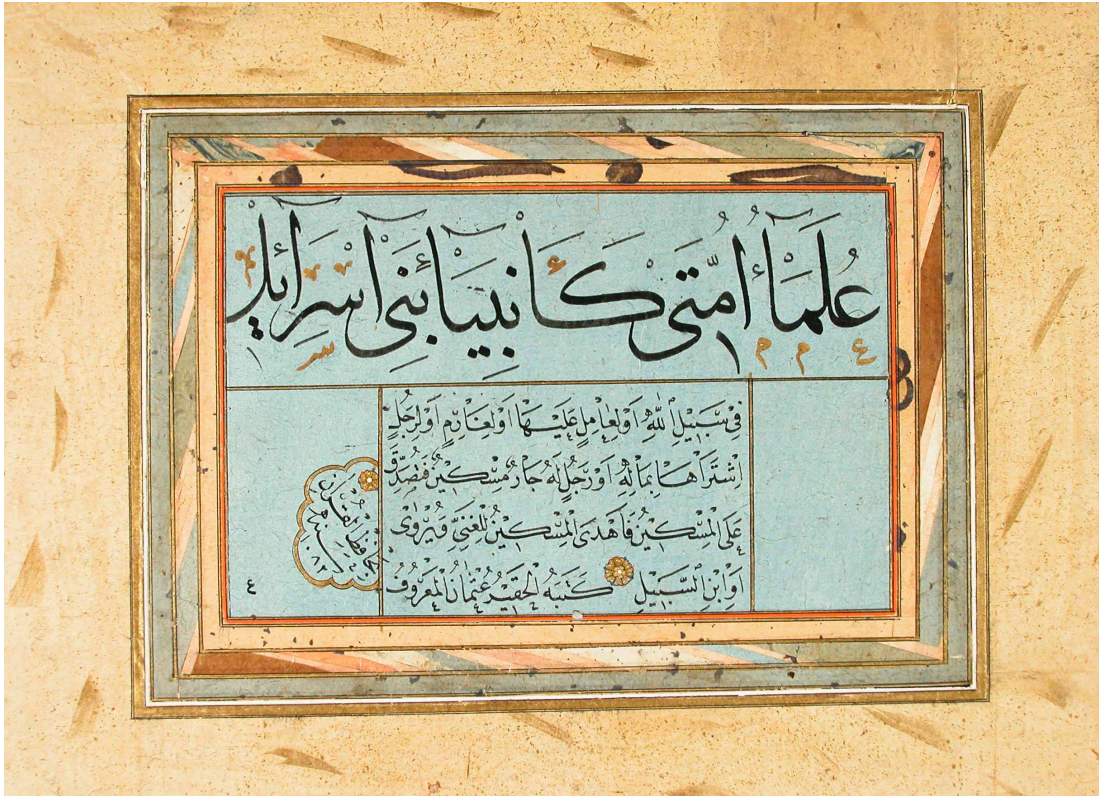 عُلَمَاءُ اُمَّتِى كَاَنْبِيَاءِ بَنِى اِسْرَائِل
فِى سَبِيلِ اللّٰهِ اَوْ لِعَامِلٍ عَلَيْهَا اَوْ لِغَارِمٍ اَوْ لِرَجُلٍ
اِشْتَرَاهَا بِمَالِهِ اَوْ رَجُلٍ لَهُ جَارٌ مِسْكِينٌ فَتُصُدِّقَ
عَلَى الْمِسْكِينِ فَاَهْدَى الْمِسْكِينُ لِلْغَنِىِّ وَيُرْوٰى
اَوِ ابْنِ السَّبِيلِ كَتَبَهُ الْحَقِيرُ عُثْمَانُ الْمَعْرُوفُ
بحافظ القرآن
سنه